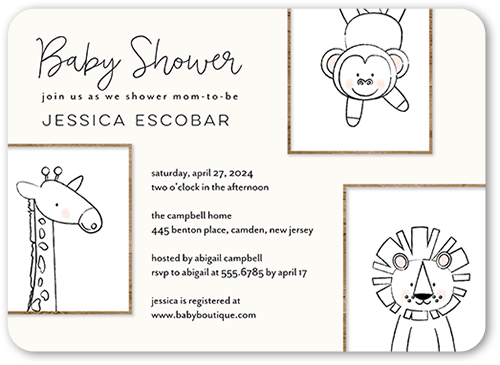 Baby Shower
join us as we shower mom-to-be
JESSICA ESCOBAR
saturday, april 27, 2024
two o'clock in the afternoon
the campbell home
445 benton place, camden, new jersey
hosted by abigail campbell
rsvp to abigail at 555.6785 by april 17
jessica is registered at
www.babyboutique.com